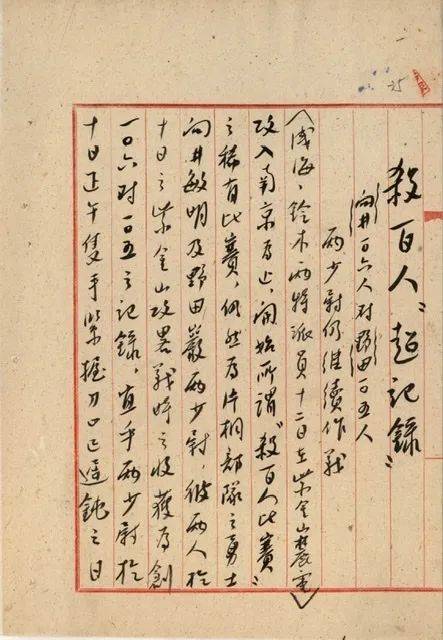 25
殺百人“超記錄”
向井一〇六人对野田一〇五人
兩少尉仍继續作戰
〈浅海、鈴木兩特派員十二日在紫金山麓電〉
攻入南京為止，開始所謂“殺百人比賽”
之稀有比賽，仍然為片桐部隊之勇士
向井敏明及野田巖兩少尉，彼兩人於
十日之紫金山攻畧戰時之收獲為創
一〇六对一〇五之記錄，兩少尉於
十日正午隻手緊握刀口已遲鈍之日